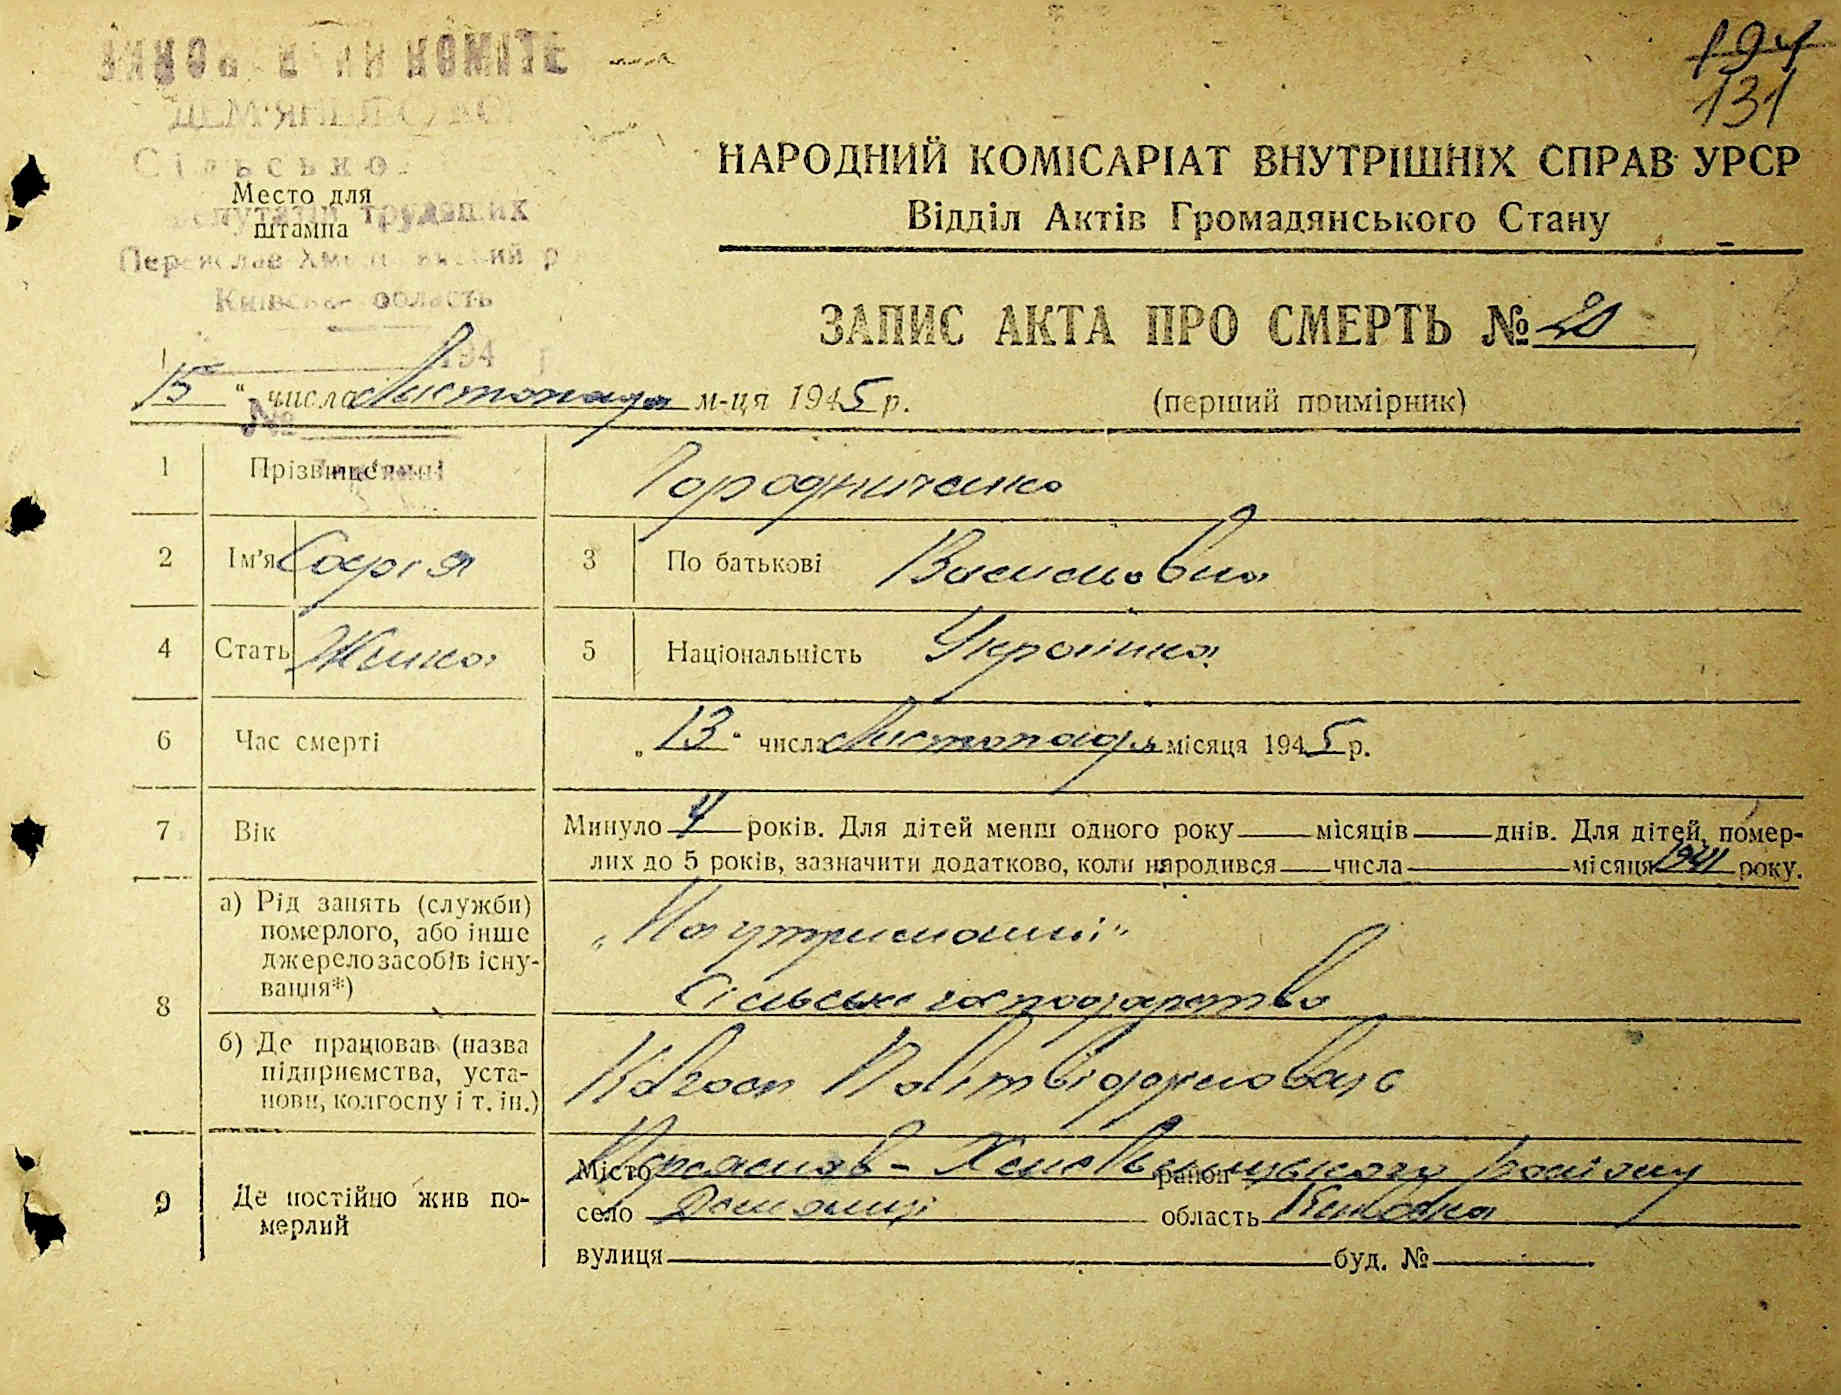 194
131
Сільсько
Место для
штампа
трудящих
Київська область
НАРОДНИЙ КОМІСАРІАТ ВНУТРІШНІХ СПРАВ УРСР
Відділ Актів Громадянського Стану
ЗАПИС АКТА ПРО СМЕРТЬ № 20
194 р
15 " числа Листопада м-ця 1945 р. (перший примірник)
№
1 Прізвище Городниченко
2 Ім'я Софія 3 По батькові Василовна
4 Стать Жінка 5 Національність Українка
6 Час смерті „ 13 " числа Листопада місяця 1945 р.
7 Вік Минуло 4 років. Для дітей менш одного року місяців днів. Для дітей, помер-
лих до 5 років, зазначити додатково, коли народився числа місяця 1941 року.
8 а) Рід занять (служби)
померлого, або інше
джерело засобів існу-
вання*)
„На утриманні"
Сільське господарство
б) Де працював (назва
підприємства, уста-
нови, колгоспу і т. ін.)
9 Де постійно жив по-
мерлий
Місто Переяслав-Хмельницького район
село область Київська
вулиця буд. №